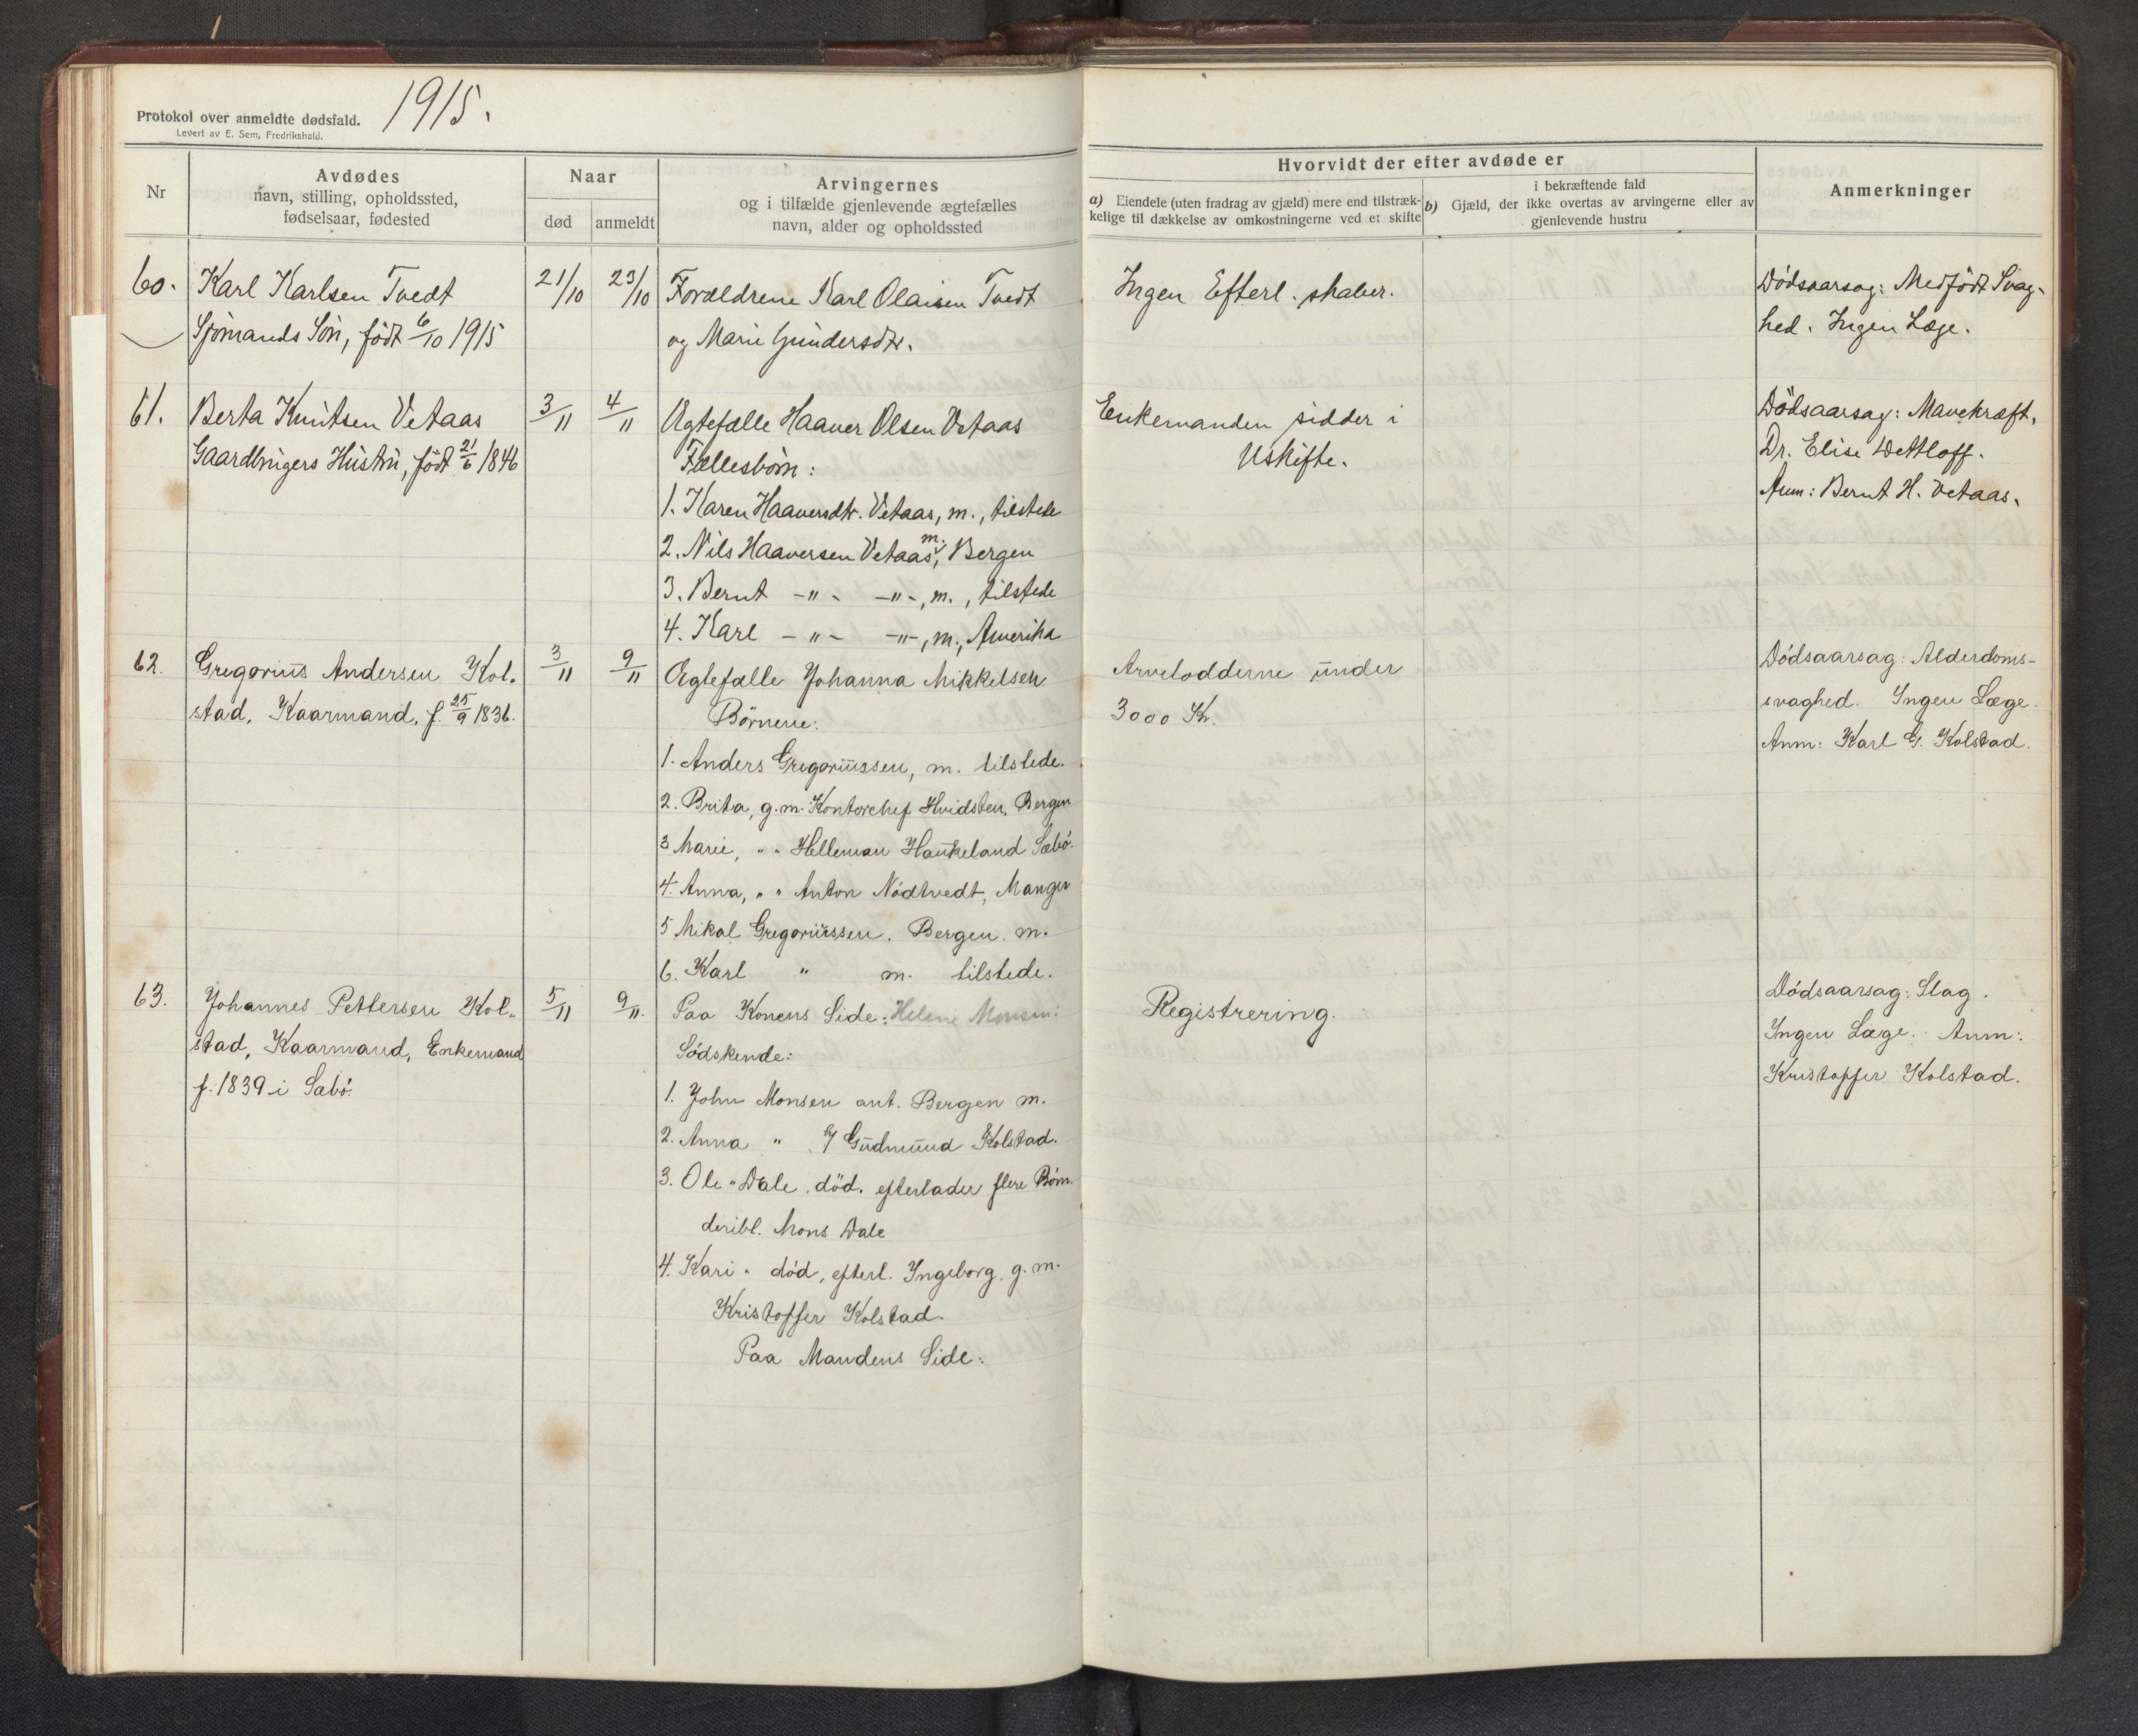 Protokol over anmeldte dødsfald. 1915.
Levert av E. Sem, Fredrikshald.
Nr
Avdødes
navn, stilling, opholdssted,
fødselsaar, fødested
Naar
død
anmeldt
Arvingernes
og i tilfælde gjenlevende ægtefælles
navn, alder og opholdssted
Hvorvidt der efter avdøde er
a) Eiendele (uten fradrag av gjæld) mere end tilstræk-
kelige til dækkelse av omkostningerne ved et skifte
i bekræftende fald
b) Gjæld, der ikke overtas av arvingerne eller av
gjenlevende hustru
Anmerkninger
60. Karl Karlsen Tvedt
Sjömands Sön, födt 6/10 1915
21/10 23/10
Forældrene Karl Olaisen Tvedt
og Marie Gundersdtr.
Ingen Efterl. skaber.
Dödsaarsag: Medfödt Svag-
hed. Ingen Læge.
61. Berta Knutsen Vetaas
Gaardbrugers Hustru, födt 21/6 1846
3/11 4/11
Ægtefælle Haaver Olsen Vetaas
Fællesbörn:
1. Karen Haaversdtr. Vetaas, m., tilstede
2. Nils Haaversen Vetaas, m. Bergen
3. Bernt -"- -"-, m., tilstede
4. Karl -"- -"-, m., Amerika
Enkemanden sidder i
Uskifte.
Dödsaarsag: Mavekræft.
Dr. Elise Dethloff.
Anm: Bernt H. Vetaas.
62. Gregorius Andersen Kol-
stad, Kaarmand, f. 25/9 1836.
3/11 9/11
Ægtefælle Johanna Mikkelsen
Börnene:
1. Anders Gregoriussen, m. tilstede.
2. Brita, g.m. Kontorchef Hvidsten, Bergen
3 Marie, " " Helleman Haukeland Sæbö.
4. Anna, " " Anton Nödtvedt, Manger
5 Mikal Gregoriussen. Bergen. m.
6. Karl " m. tilstede.
Arvelodderne under
3000 Kr.
Dödsaarsag: Alderdoms-
svaghed. Ingen Læge.
Anm: Karl G. Kolstad.
63. Johannes Pettersen Kol-
stad, Kaarmand, Enkemand
f. 1839 i Sæbö.
5/11 9/11.
Paa Konens Side: Helene Monsen:
Södskende:
1. John Monsen ant. Bergen m.
2. Anna " E/ Gudmund Kolstad.
3. Ole " Dale, död. efterlader flere Börn.
deribl. Mons Dale
4. Kari " död, efterl. Ingeborg, g.m.
Kristoffer Kolstad.
Paa Mandens Side:
Registrering.
Dödsaarsag: Slag.
Ingen Læge. Anm:
Kristoffer Kolstad.